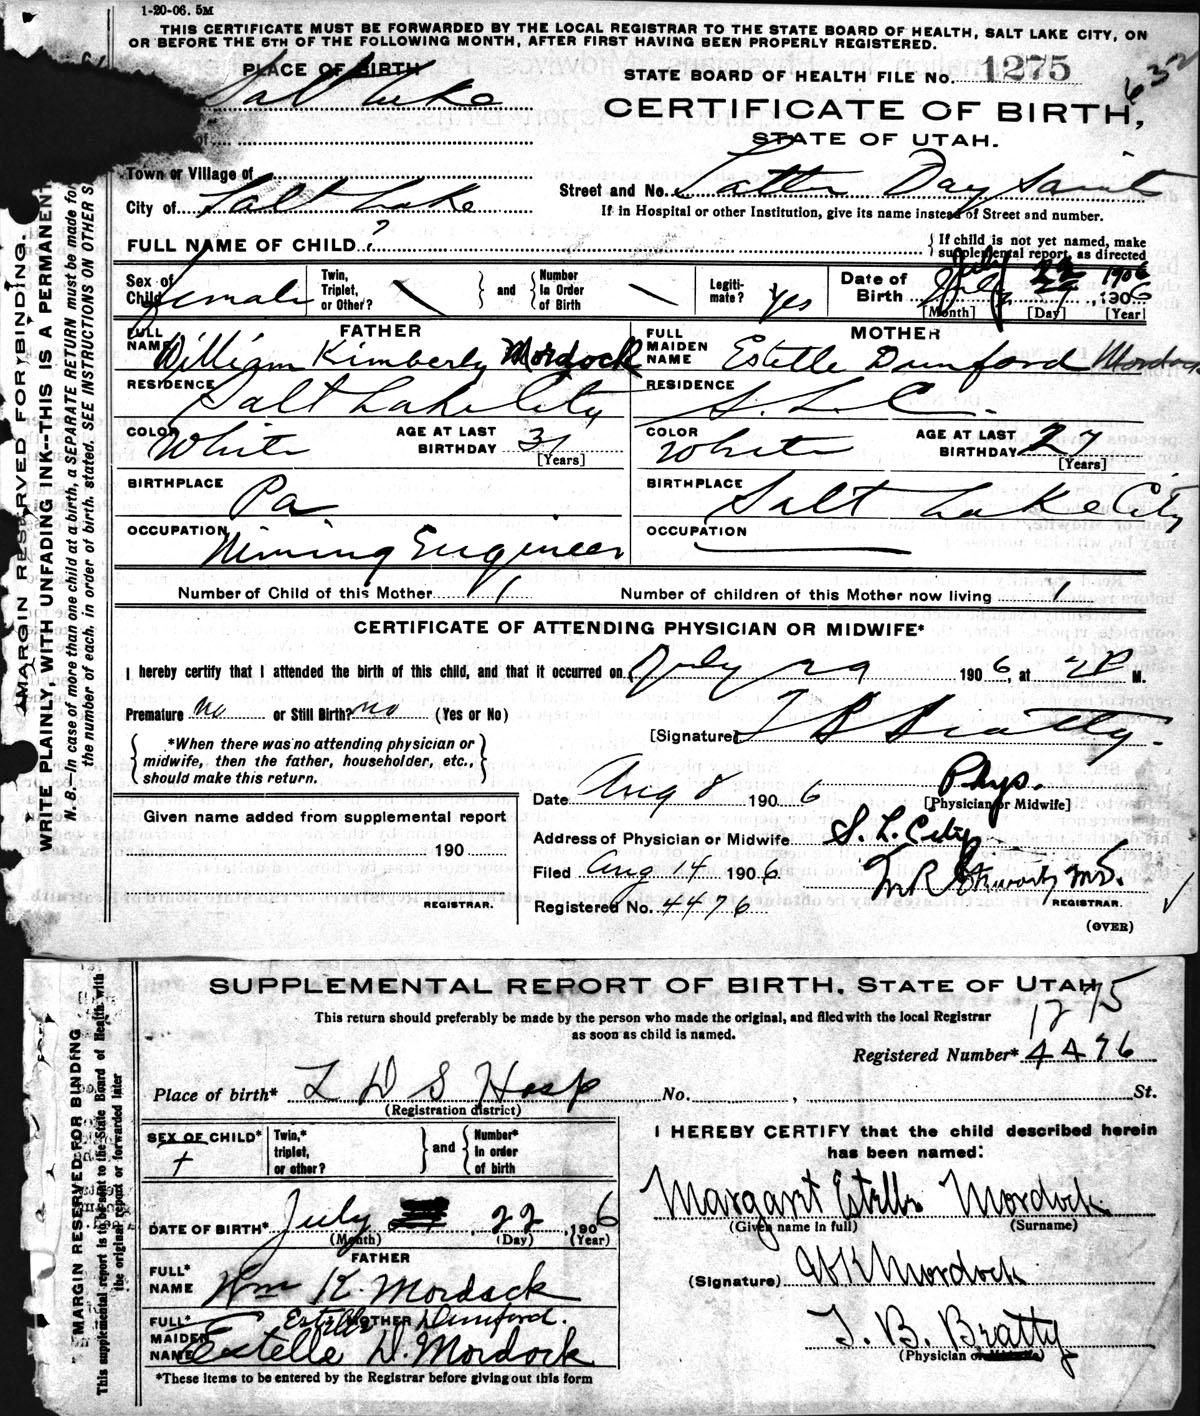 1-20-06. 5M
THIS CERTIFICATE MUST BE FORWARDED BY THE LOCAL REGISTRAR TO THE STATE BOARD OF HEALTH, SALT LAKE CITY, ON
OR BEFORE THE 5TH OF THE FOLLOWING MONTH, AFTER FIRST HAVING BEEN PROPERLY REGISTERED.
PLACE OF BIRTH
Salt Lake
STATE BOARD OF HEALTH FILE No. 1275
632
CERTIFICATE OF BIRTH,
STATE OF UTAH.
of
Town or Village of
City of Salt Lake
Street and No. Latter Day Saint
If in Hospital or other Institution, give its name instead of Street and number.
FULL NAME OF CHILD ?
If child is not yet named, make
supplemental report, as directed
Sex of Child female
Twin, Triplet, or Other? and Number In Order of Birth
Legitimate? yes
Date of Birth July 29, 1906
July 22 1906
[Month] [Day] [Year]
FATHER
FULL NAME William Kimberly Mordock
RESIDENCE Salt Lake City
COLOR White AGE AT LAST BIRTHDAY 31
[Years]
BIRTHPLACE Pa
OCCUPATION Mining Engineer
MOTHER
FULL MAIDEN NAME Estelle Dunford Mordock
RESIDENCE S. L. C.
COLOR White AGE AT LAST BIRTHDAY 27
[Years]
BIRTHPLACE Salt Lake City
OCCUPATION
Number of Child of this Mother 1 Number of children of this Mother now living 1
CERTIFICATE OF ATTENDING PHYSICIAN OR MIDWIFE*
I hereby certify that I attended the birth of this child, and that it occurred on July 29 1906, at 2 P M.
Premature no or Still Birth? no (Yes or No)
[Signature] T B Beatty.
*When there was no attending physician or
midwife, then the father, householder, etc.,
should make this return.
Date Aug 8 1906 Phys.
[Physician or Midwife]
Given name added from supplemental report
190
REGISTRAR.
Address of Physician or Midwife S. L. City
Filed Aug 14 1906 M.D.
REGISTRAR.
Registered No. 4476
(OVER)
MARGIN RESERVED FOR BINDING.
WRITE PLAINLY, WITH UNFADING INK--THIS IS A PERMANENT
N. B.--In case of more than one child at a birth, a SEPARATE RETURN must be made for
the number of each, in order of birth, stated. SEE INSTRUCTIONS ON OTHER S
SUPPLEMENTAL REPORT OF BIRTH, STATE OF UTAH
1275
This return should preferably be made by the person who made the original, and filed with the local Registrar
as soon as child is named.
Registered Number* 4476
Place of birth* L D S Hosp No. , St.
(Registration district)
SEX OF CHILD*
Twin,* triplet, or other? and Number* in order of birth
DATE OF BIRTH* July 22, 1906
(Month) (Day) (Year)
FATHER
FULL* NAME Wm K. Mordock
MOTHER
Estelle Dunford.
FULL* MAIDEN NAME Estelle D. Mordock
*These items to be entered by the Registrar before giving out this form
I HEREBY CERTIFY that the child described herein
has been named:
Margaret Estelle Mordock
(Given name in full) (Surname)
(Signature) W K Mordock
T. B. Beatty
(Physician or Midwife)
MARGIN RESERVED FOR BINDING
This supplemental report is to be sent to the State Board of Health with
the original report or forwarded later